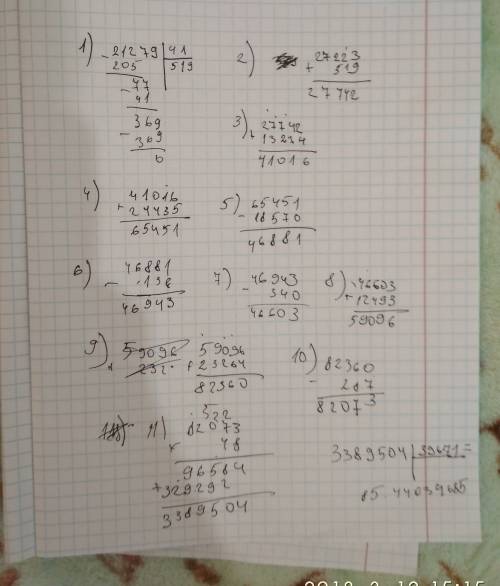 1) - 21279 | 41
205 | 519
- 77
41
369
- 369
0
2) 27223
+ 519
27742
3) + 27742
13274
41016
4) 41016
+ 24435
65451
5) - 65451
18570
46881
6) - 46881
138
46943
7) - 46943
340
46603
8) 46603
+ 12493
59096
9) 59096
232
59096
+ 23264
82360
10) - 82360
287
82073
11) 522
82073
× 48
96584
+ 329292
3389504
3389504